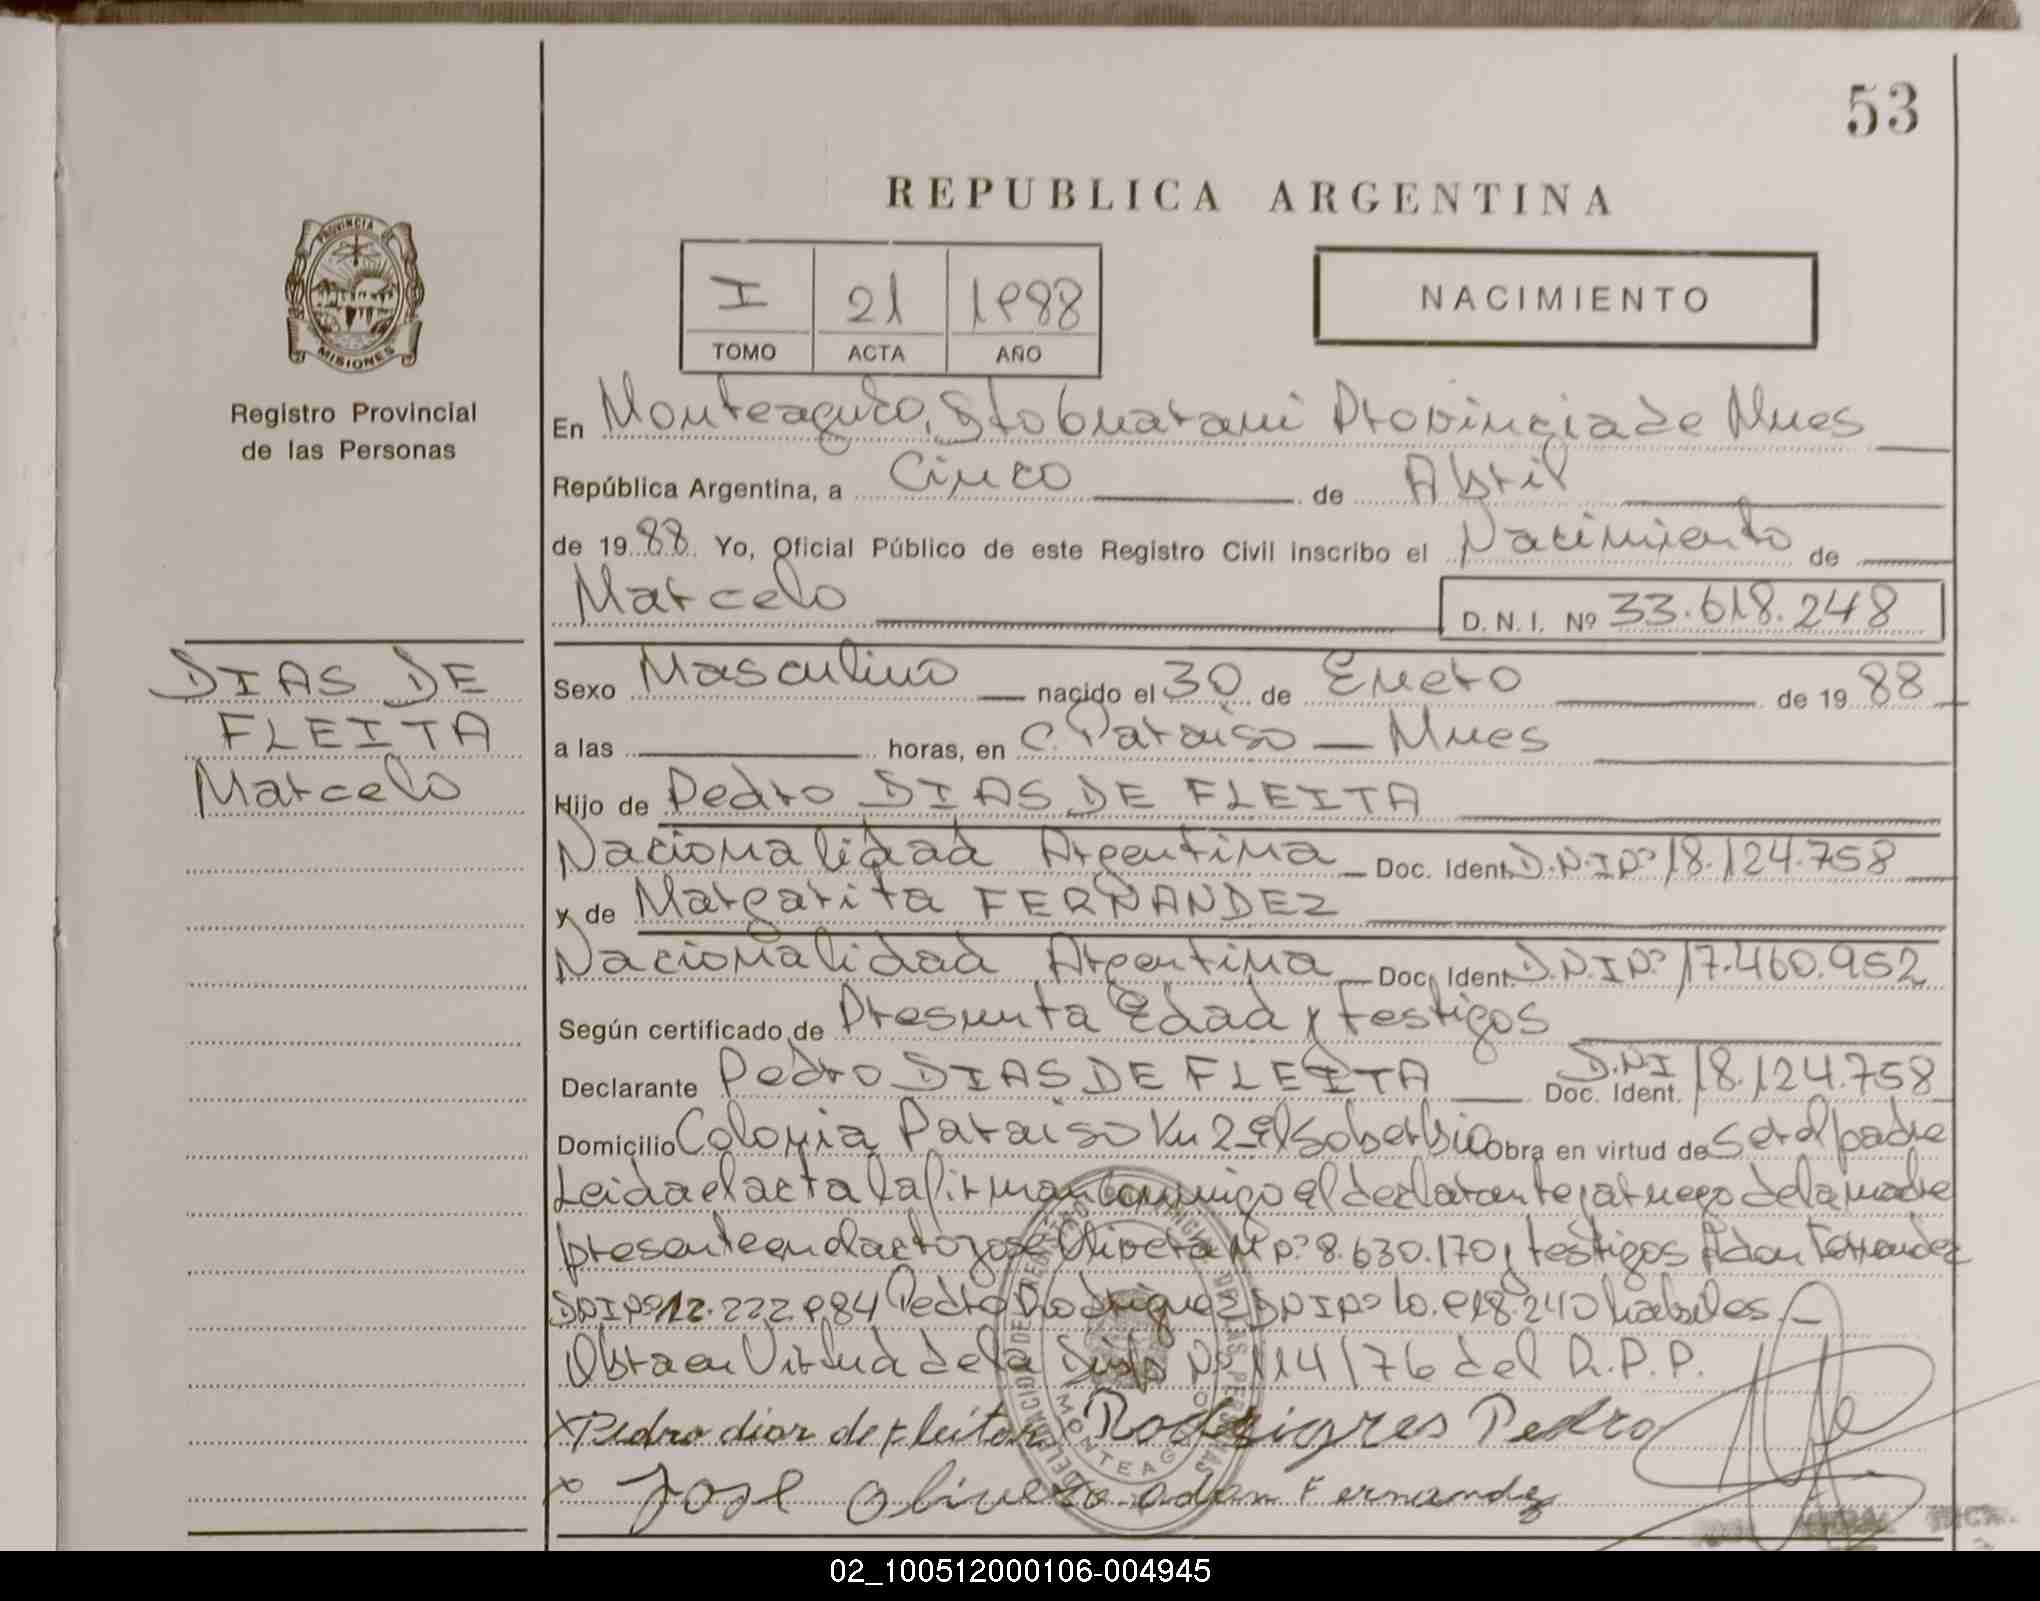 53
REPUBLICA ARGENTINA
PROVINCIA DE
MISIONES
Registro Provincial
de las Personas
I 21 1988
TOMO ACTA AÑO
NACIMIENTO
En Monteagudo, Gto Guarani Provincia de Mnes
República Argentina, a Cinco de Abril
de 1988 Yo, Oficial Público de este Registro Civil inscribo el Nacimiento de
Marcelo D. N. I. Nº 33.618.248
DIAS DE
FLEITA
Marcelo
Sexo Masculino nacido el 30 de Enero de 1988
a las horas, en C. Paraiso — Mnes
Hijo de Pedro DIAS DE FLEITA
Nacionalidad Argentina Doc. Ident. D.N.I Nº 18.124.758
y de Margarita FERNANDEZ
Nacionalidad Argentina Doc. Ident. D.N.I Nº 17.460.952
Según certificado de Presunta Edad y testigos
Declarante Pedro DIAS DE FLEITA Doc. Ident. D.N.I 18.124.758
Domicilio Colonia Paraiso Km 2 El Soberbio Obra en virtud de Ser el padre
Leida el acta la firman conmigo el declarante, a ruego de la madre
presente en el acto Jose Olivera M Nº 8.630.170, testigos Adan Fernandez
DNI Nº 12.222.984 Pedro Rodriguez DNI Nº 10.918.240 habiles
Obra en Virtud de la Nº 114/76 del R.P.P.
x Pedro dias de fleita Rodrigres Pedro
x Jose Olivera adan Fernandez
MONTEAGUDO
02_100512000106-004945